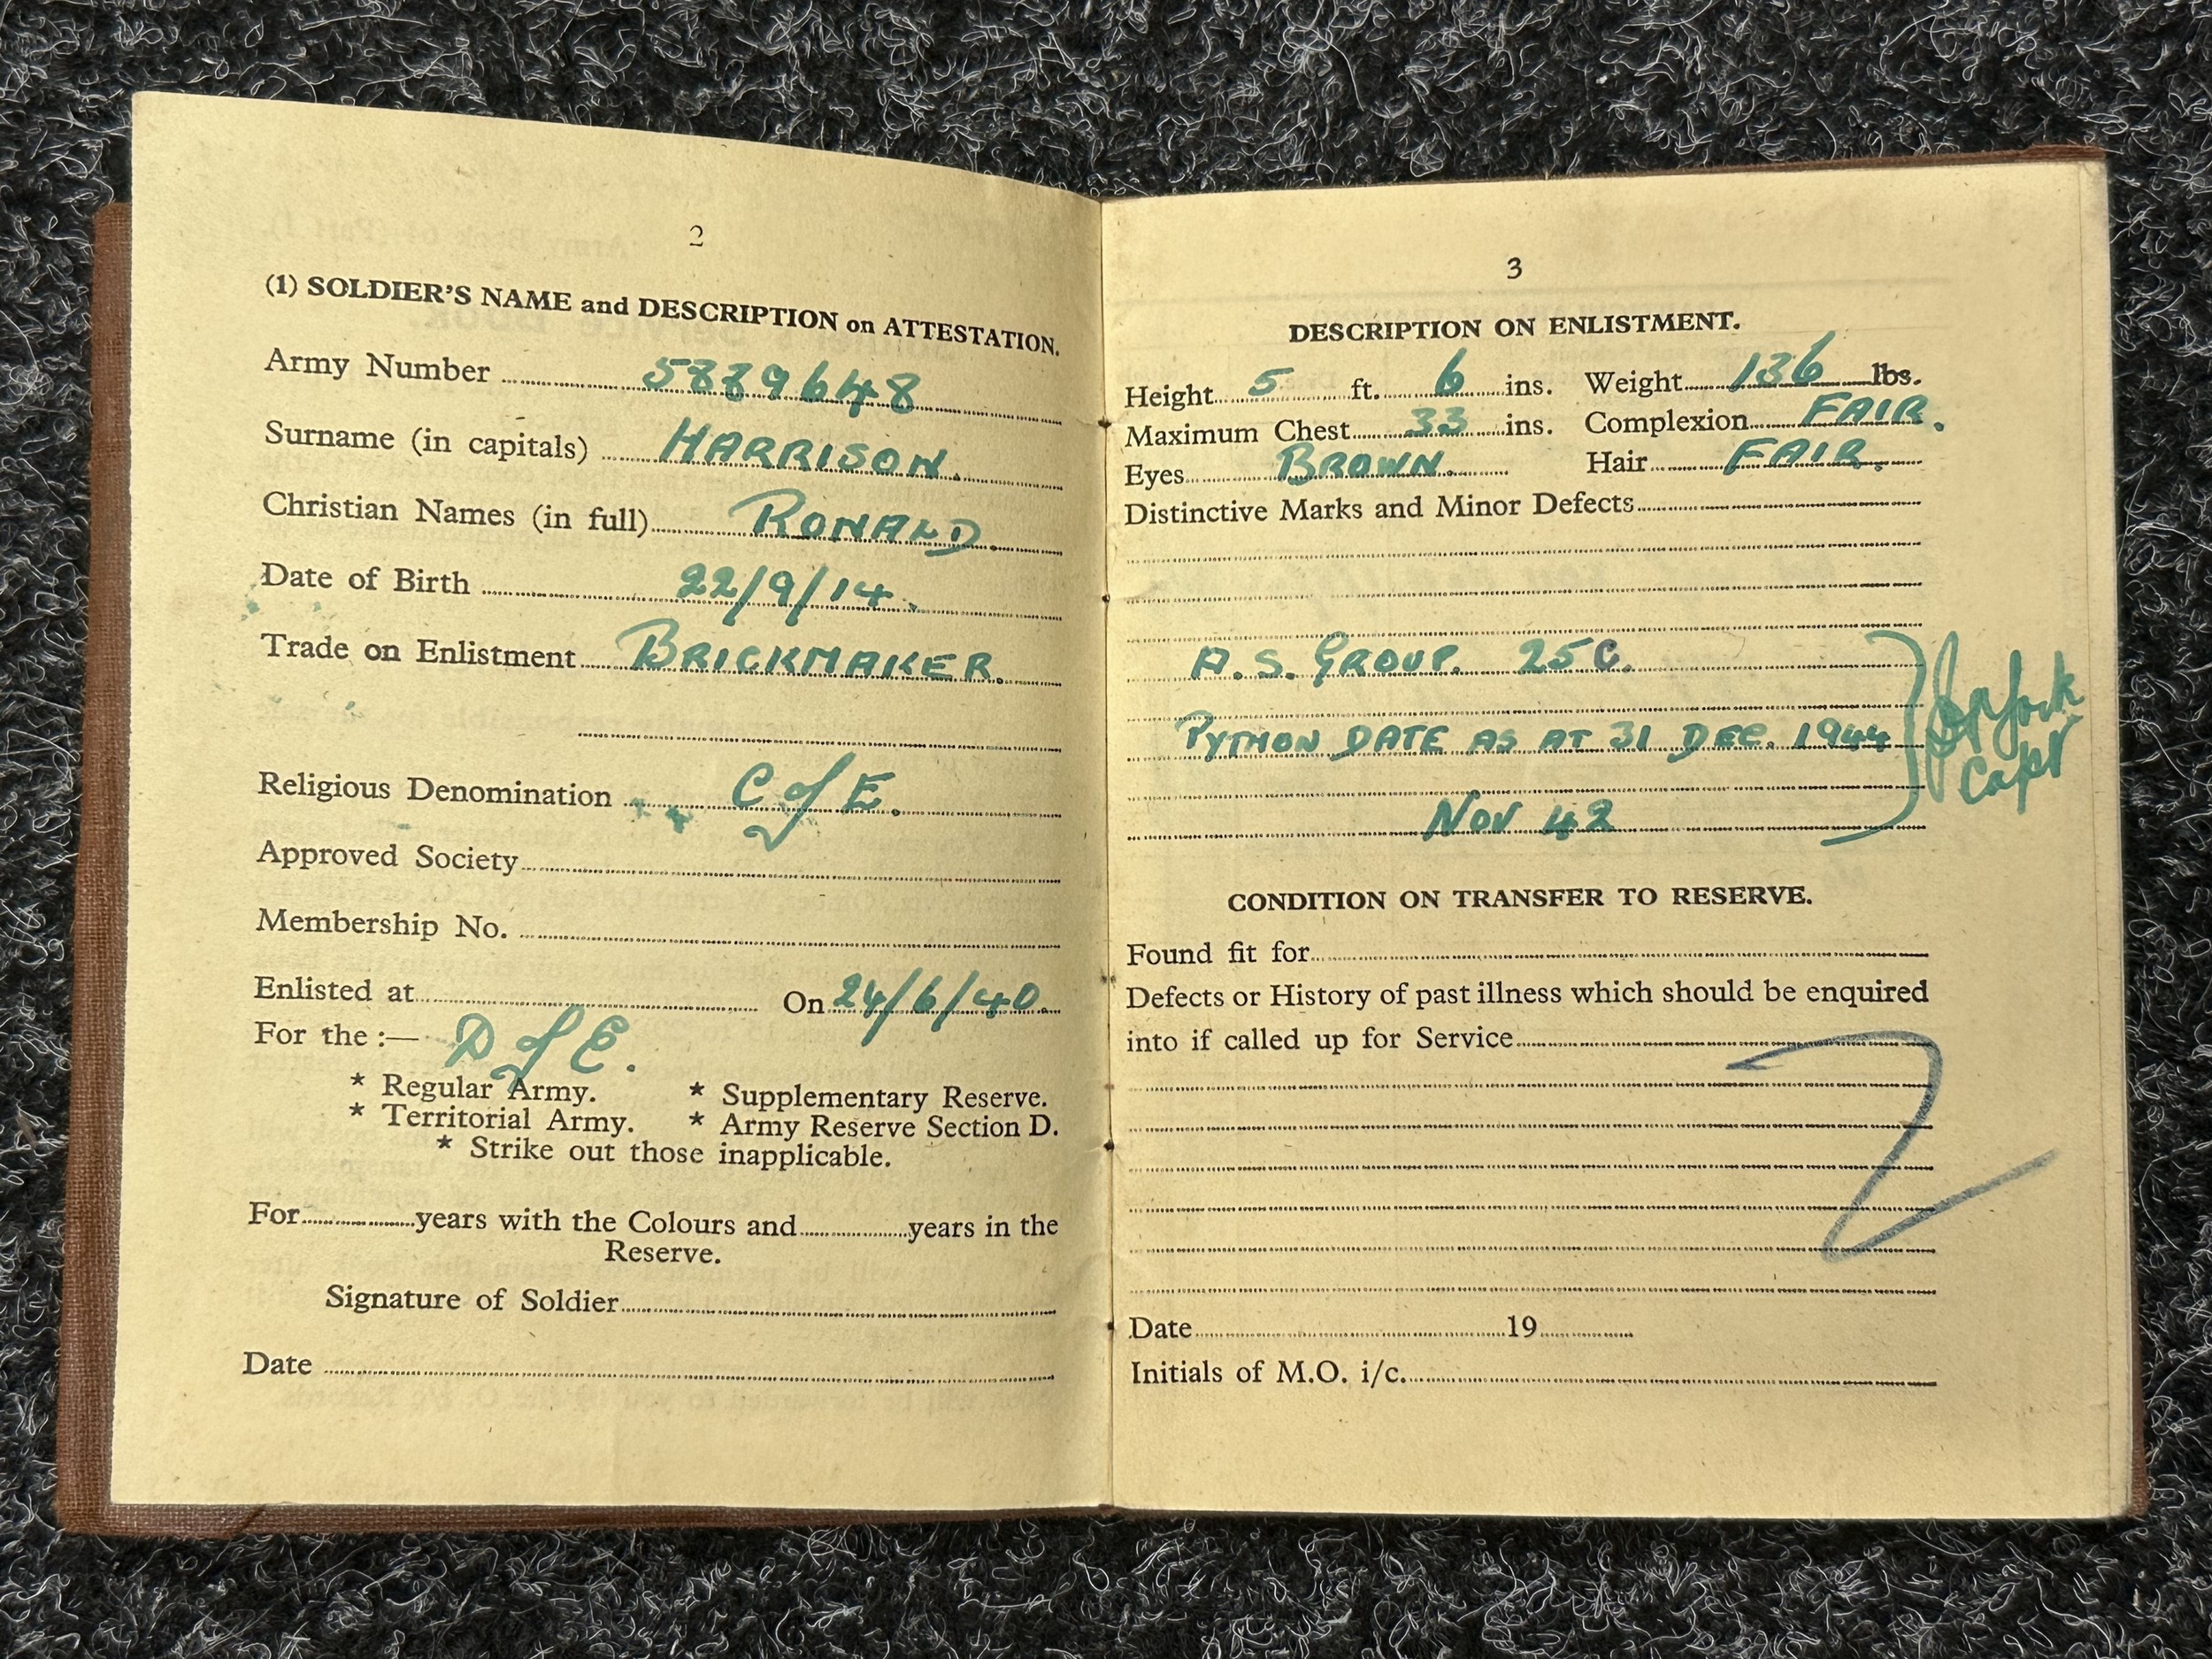 2
(1) SOLDIER'S NAME and DESCRIPTION on ATTESTATION.
Army Number 5889648
Surname (in capitals) HARRISON.
Christian Names (in full) RONALD.
Date of Birth 22/9/14.
Trade on Enlistment BRICKMAKER.
Religious Denomination C of E.
Approved Society
Membership No.
Enlisted at On 24/6/40.
For the :— D of E.
* Regular Army. * Supplementary Reserve.
* Territorial Army. * Army Reserve Section D.
* Strike out those inapplicable.
For years with the Colours and years in the
Reserve.
Signature of Soldier
Date
3
DESCRIPTION ON ENLISTMENT.
Height 5 ft. 6 ins. Weight 136 lbs.
Maximum Chest 33 ins. Complexion FAIR.
Eyes BROWN. Hair FAIR.
Distinctive Marks and Minor Defects
A.S. GROUP. 25 C.
PYTHON DATE AS AT 31 DEC. 1944
Capt
NOV 42
CONDITION ON TRANSFER TO RESERVE.
Found fit for
Defects or History of past illness which should be enquired
into if called up for Service
Date 19
Initials of M.O. i/c.